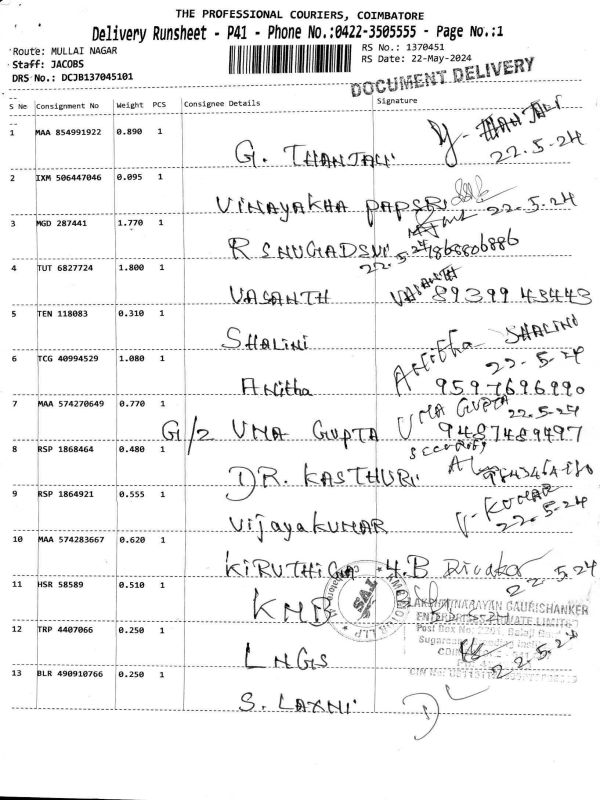 THE PROFESSIONAL COURIERS, COIMBATORE
Delivery Runsheet - P41 - Phone No.:0422-3505555 - Page No.:1
Route: MULLAI NAGAR
RS No.: 1370451
Staff: JACOBS
RS Date: 22-May-2024
DRS No.: DCJB137045101
DOCUMENT DELIVERY
S No Consignment No Weight PCS Consignee Details Signature
1 MAA 854991922 0.890 1
G. THANJALI
22.5.24
2 IXM 506447046 0.095 1
VINAYAKHA PAPSRI
22.5.24
3 MGD 287441 1.770 1
22.5.24 7868806886
4 TUT 6827724 1.800 1
VASANTH VASANTH 89399 43443
5 TEN 118083 0.310 1
SHALINI SHALINI
22.5.24
6 TCG 40994529 1.080 1
Anitha Anitha
9597696990
7 MAA 574270649 0.770 1
UMA GUPTA 22.5.24
G/2 UMA GUPTA 9487489497
8 RSP 1868464 0.480 1
Security
DR. KASTHURI
9 RSP 1864921 0.555 1
V. KUMAR
Vijayakumar 22.5.24
10 MAA 574283667 0.620 1
KIRUTHIGA 4.B Divakar
22.5.24
11 HSR 58589 0.510 1
KMB
TVS
LLP
LAKSHMINARAYAN GAURISHANKER
ENTERPRISES PRIVATE LIMITED
12 TRP 4407066 0.250 1
LNGS
22.5.24
13 BLR 490910766 0.250 1
S. LAXMI